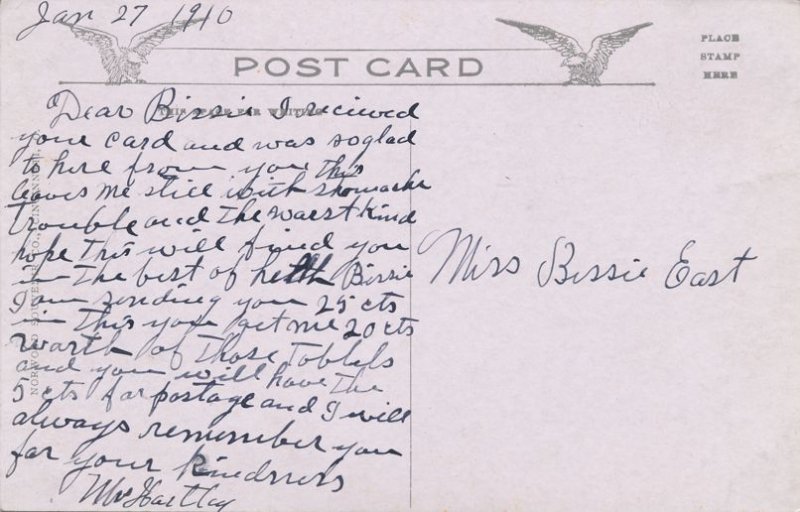 Jan 27 1910
POST CARD
PLACE
STAMP
HERE
THIS SPACE FOR WRITING
Dear Bissie I recieved
your card and was soglad
to here from you this
leaves me still with stomache
trouble and the warst kind
hope this will find you
in the best of helth Bissie
I am sending you 25 cts
in this you get me 20 cts
warth of those tablets
and you will have the
5 cts far postage and I will
always remember you
far your kindness
Mr Hartley
Miss Bissie East
NORWOOD SOUVENIR CO., CINCINNATI,